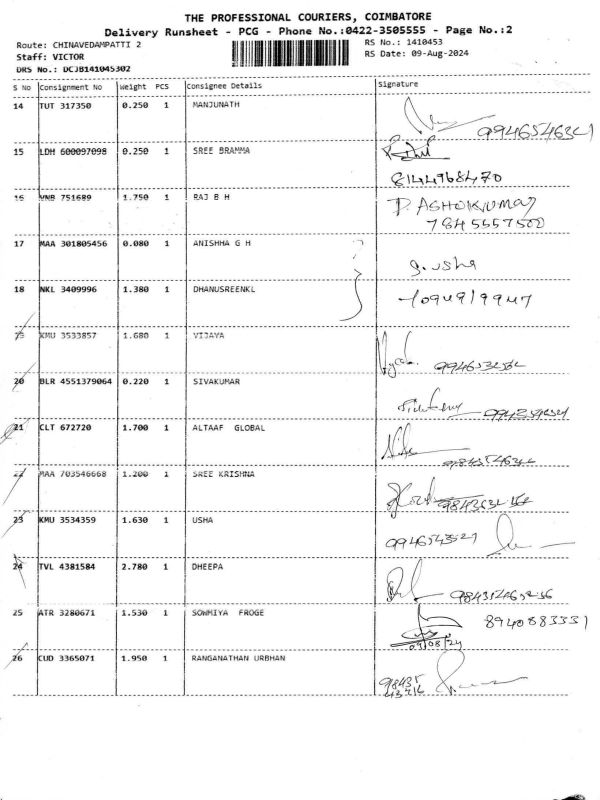 THE PROFESSIONAL COURIERS, COIMBATORE
Delivery Runsheet - PCG - Phone No.:0422-3505555 - Page No.:2
Route: CHINAVEDAMPATTI 2
RS No.: 1410453
Staff: VICTOR
RS Date: 09-Aug-2024
DRS No.: DCJB141045302
S No Consignment No Weight PCS Consignee Details Signature
14 TUT 317350 0.250 1 MANJUNATH
15 LDH 600097098 0.250 1 SREE BRAMMA
8144968470
16 VNB 751689 1.750 1 RAJ B H P. ASHOKKUMAR
7845557500
17 MAA 301805456 0.080 1 ANISHHA G H
g. usha
18 NKL 3409996 1.380 1 DHANUSREENKL
19 KMU 3533857 1.680 1 VIJAYA
20 BLR 4551379064 0.220 1 SIVAKUMAR
21 CLT 672720 1.700 1 ALTAAF GLOBAL
22 MAA 703546668 1.200 1 SREE KRISHNA
23 KMU 3534359 1.630 1 USHA
24 TVL 4381584 2.780 1 DHEEPA
25 ATR 3280671 1.530 1 SOWMIYA FROGE 8940883331
09/08/24
26 CUD 3365071 1.950 1 RANGANATHAN URBHAN